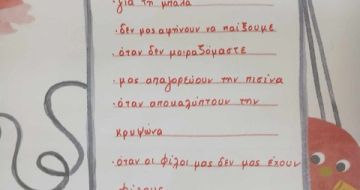 για τη μπάλα
·δεν μας αφήνουν να παίξουμε
·όταν δεν μοιραζόμαστε
·μας απαγορεύουν την πισίνα
·όταν αποκαλύπτουν την
κρυψώνα
·όταν οι φίλοι μας δεν μας έχουν